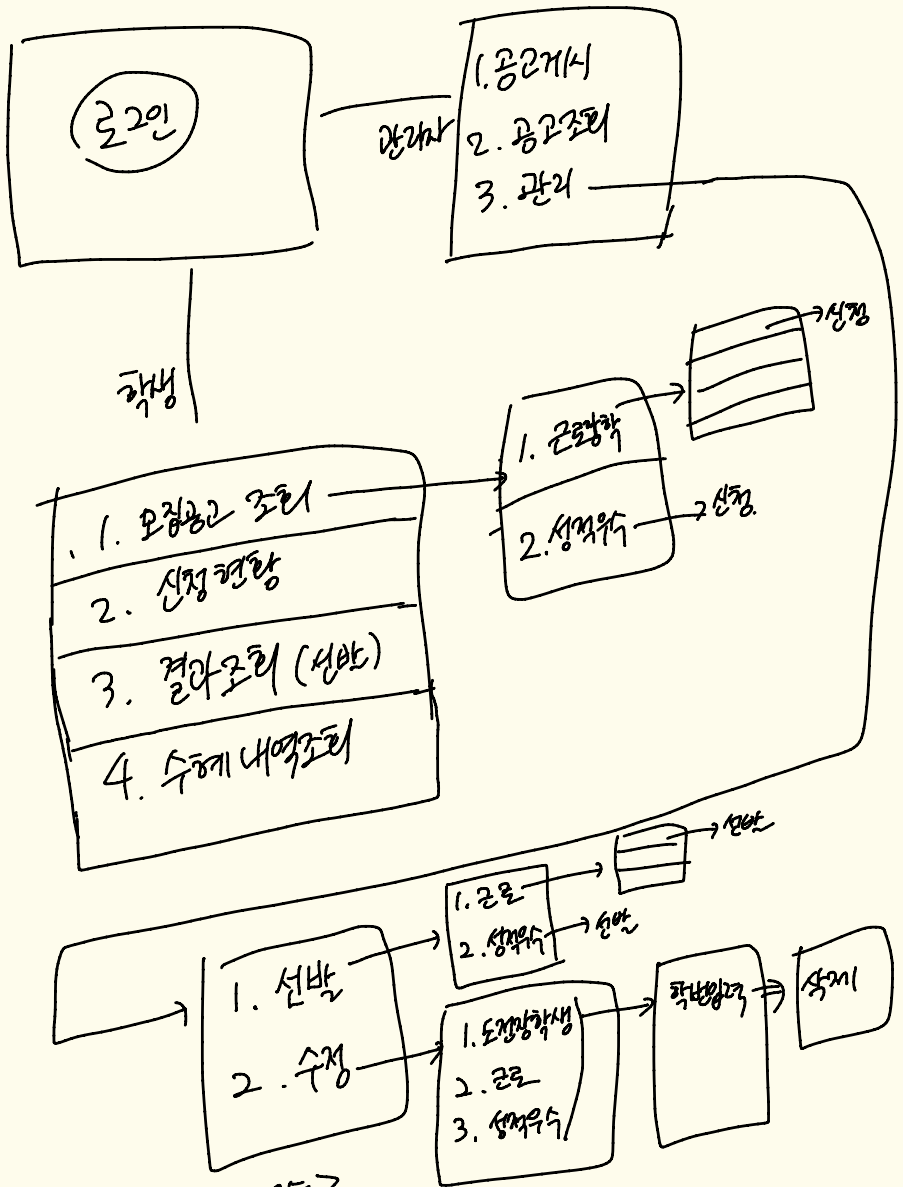 로그인
관리자
1. 공고게시
2. 공고조회
3. 관리
학생
1. 모집공고 조회
2. 신청현황
3. 결과조회 (선발)
4. 수혜내역조회
1. 근로장학
2. 성적우수
신청
신청.
1. 선발
2. 수정
1. 근로
2. 성적우수
선발
선발
1. 도전장학생
2. 근로
3. 성적우수
학번입력
삭제